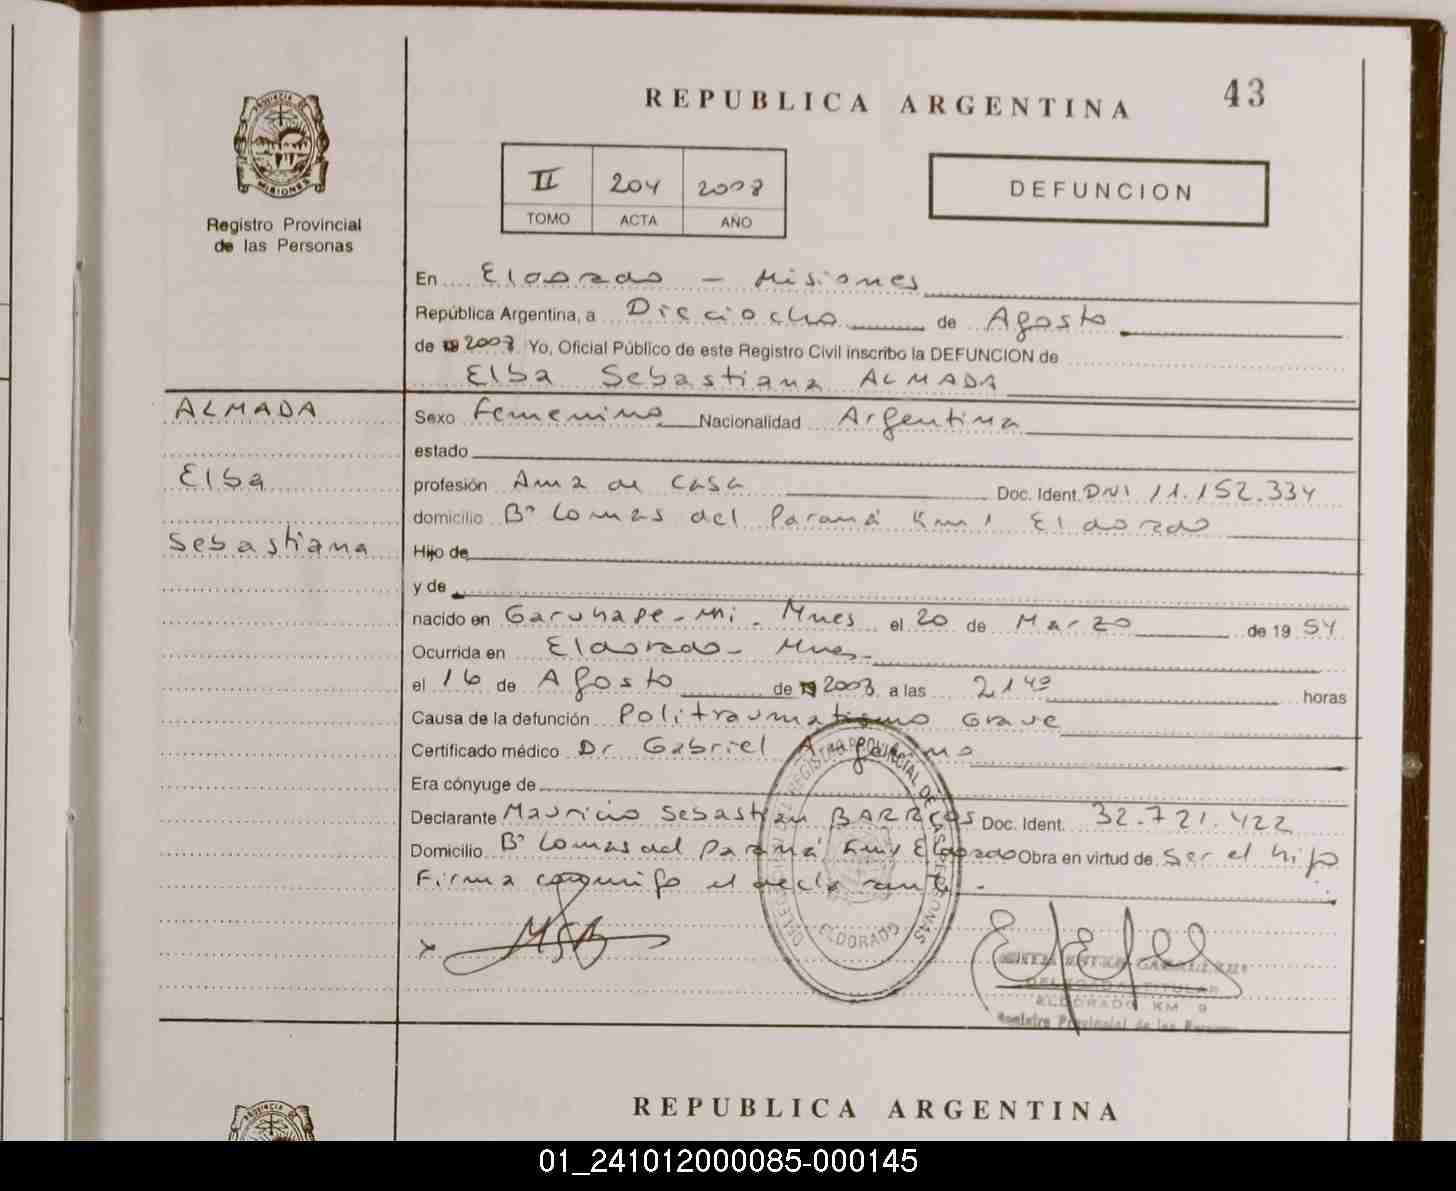 43
REPUBLICA ARGENTINA
PROVINCIA DE MISIONES
Registro Provincial
de las Personas
II 204 2008
TOMO ACTA AÑO
DEFUNCION
En Eldorado - Misiones
República Argentina, a Dieciocho de Agosto
de 19 2008 Yo, Oficial Público de este Registro Civil inscribo la DEFUNCION de
Elba Sebastiana ALMADA
ALMADA
Elba
Sebastiana
Sexo Femenino Nacionalidad Argentina
estado
profesión Ama de Casa Doc. Ident. DNI 11.152.334
domicilio Bº Lomas del Paraná Km 1 Eldorado
Hijo de
y de
nacido en Garuhape-Mi. Mnes el 20 de Marzo de 19 54
Ocurrida en Eldorado- Mnes-
el 16 de Agosto de 19 2008 a las 21 40 horas
Causa de la defunción Politraumatismo Grave
Certificado médico Dr. Gabriel
Era cónyuge de
Declarante Mauricio Sebastian BARRIOS Doc. Ident. 32.721.422
Domicilio Bº Lomas del Paraná Km 1 Eldorado Obra en virtud de Ser el hijo
Firma conmigo el declarante -
DELEGACION DEL REGISTRO PROVINCIAL DE LAS PERSONAS
ELDORADO
DELEGADA TITULAR
ELDORADO KM 9
Registro Provincial de las Personas
REPUBLICA ARGENTINA
PROVINCIA DE
01_241012000085-000145